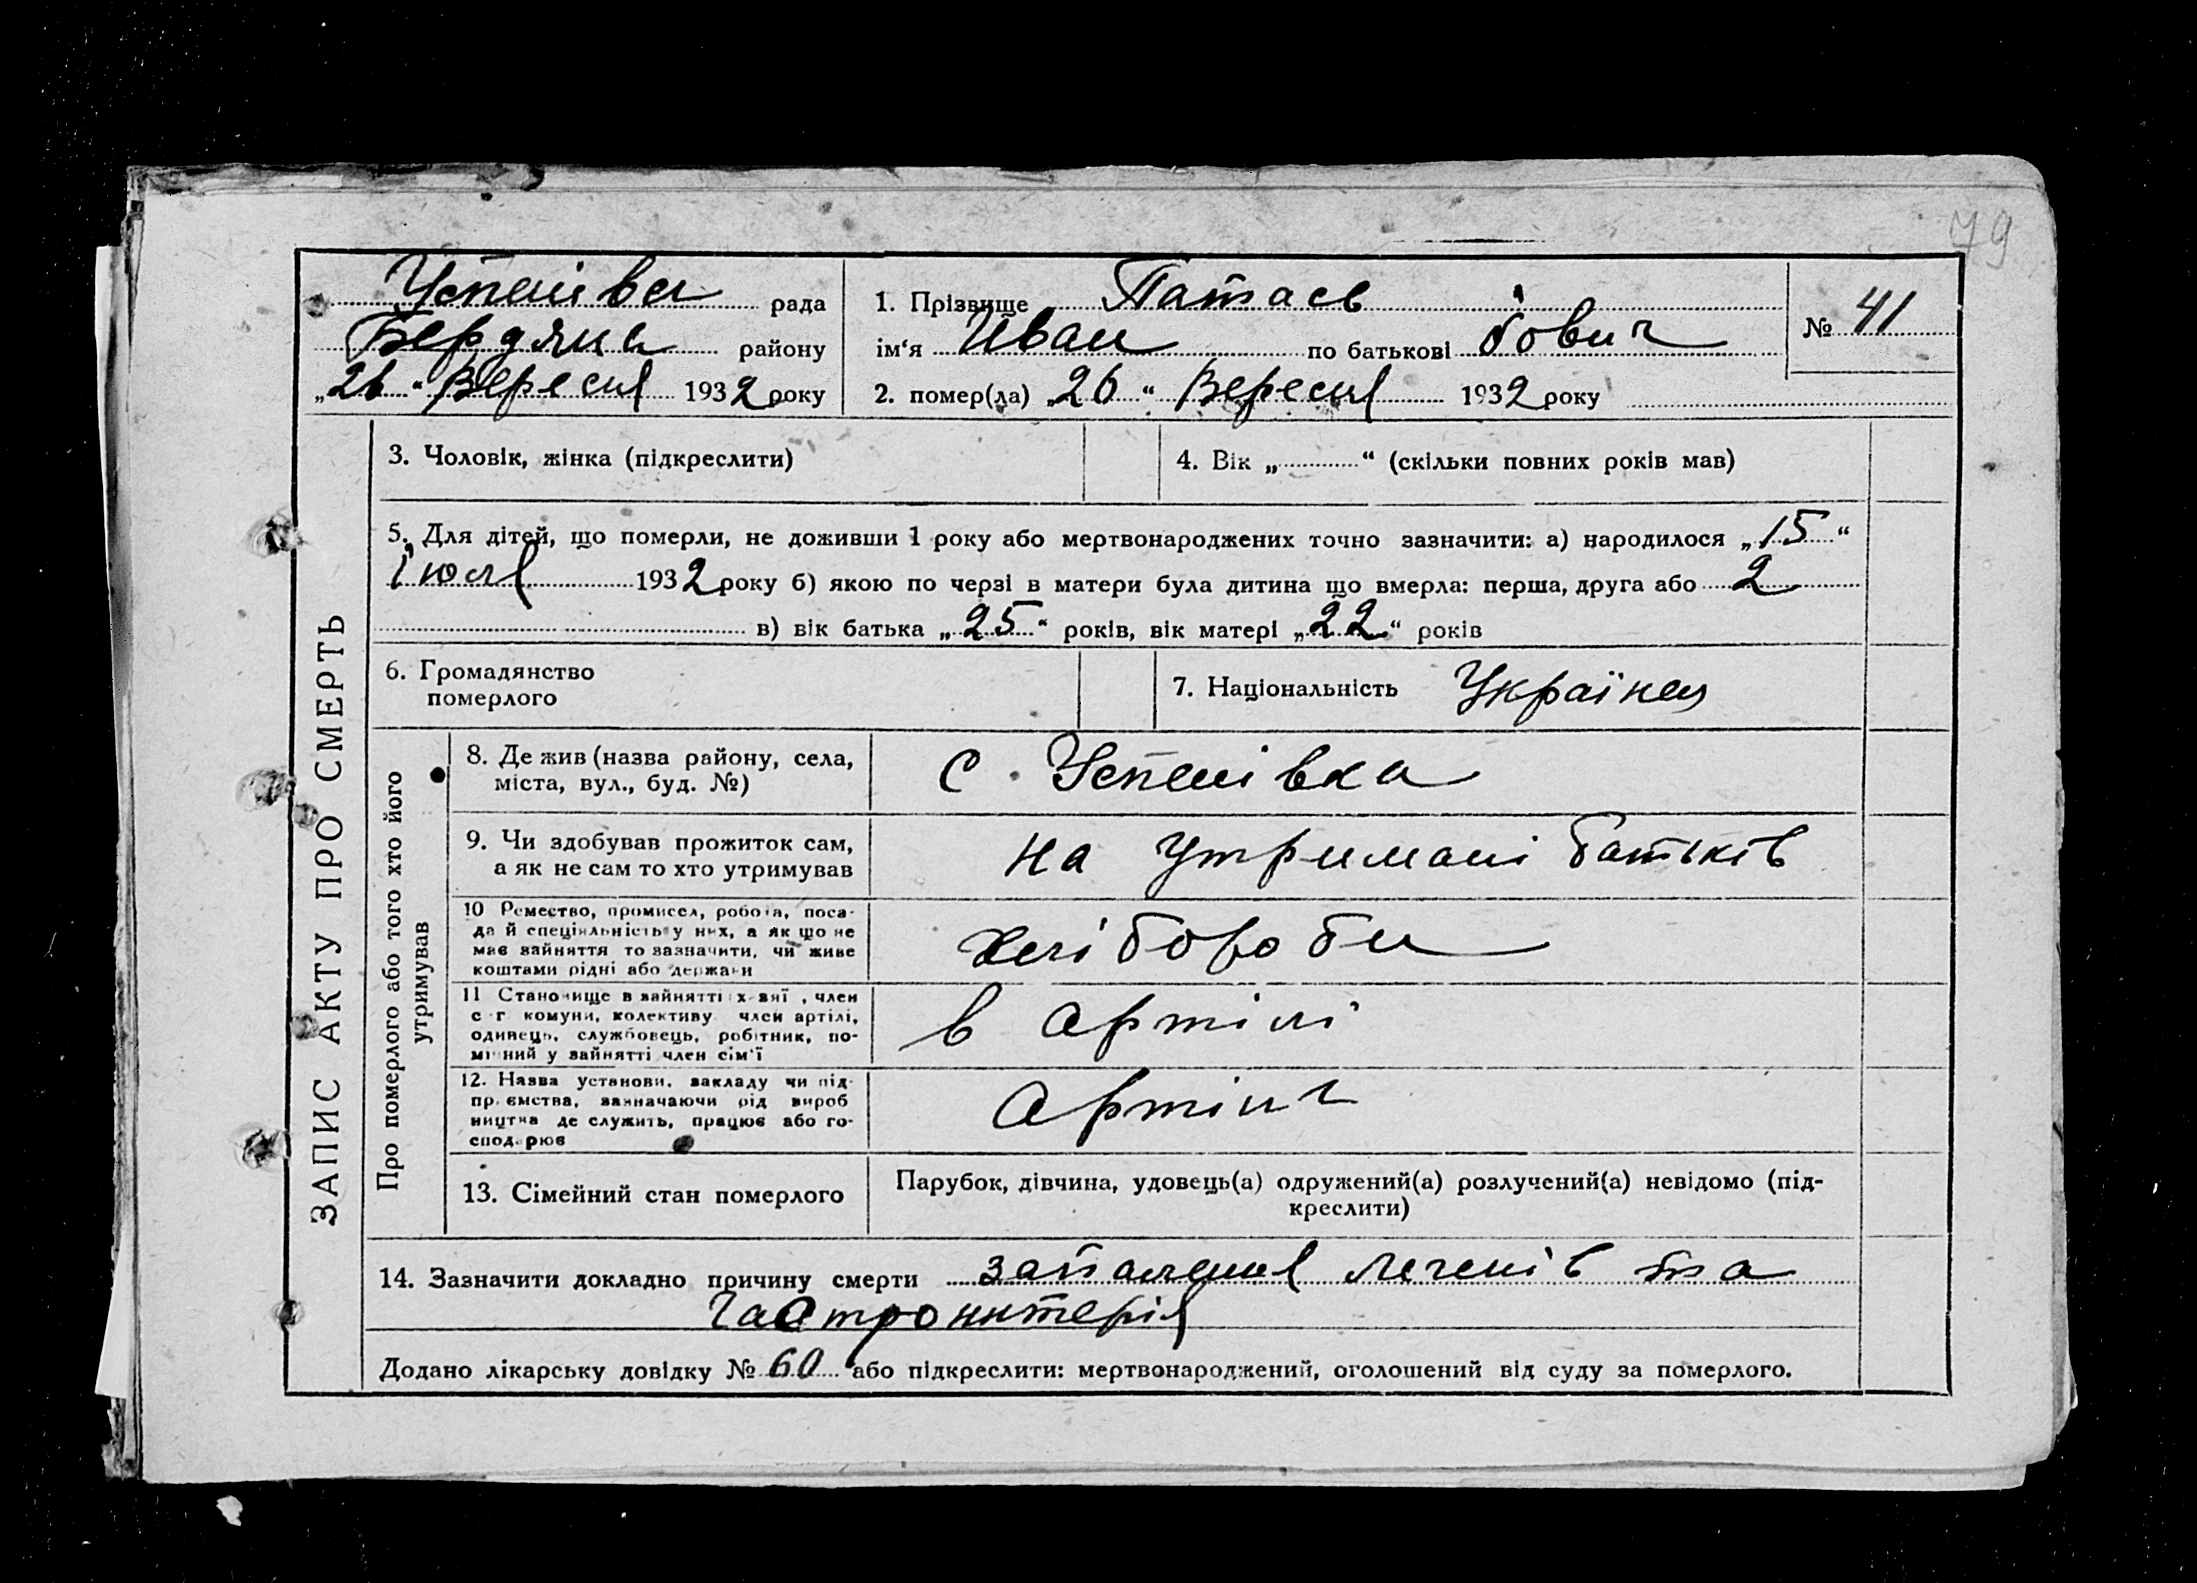 79
Успенівка рада
Бердянс району
„26“ Вересня 1932 року
1. Прізвище Патаєв
ім‘я Иван по батькові йович
№ 41
2. помер(ла) „26“ Вересня 1932 року
ЗАПИС АКТУ ПРО СМЕРТЬ
3. Чоловік, жінка (підкреслити)
4. Вік „ “ (скільки повних років мав)
5. Для дітей, що померли, не доживши 1 року або мертвонароджених точно зазначити: а) народилося „15“
Iюля 1932 року б) якою по черзі в матери була дитина що вмерла: перша, друга або 2
в) вік батька „25“ років, вік матері „22“ років
6. Громадянство
померлого
7. Національність Україная
Про померлого або того хто його
утримував
8. Де жив (назва району, села,
міста, вул., буд. №)
с. Успенівка
9. Чи здобував прожиток сам,
а як не сам то хто утримував
на утримані батьків
10 Ремество, промисел, робота, поса-
да й спеціяльність у них, а як що не
має зайняття то зазначити, чи живе
коштами рідні або держави
хліборобы
11 Становище в зайнятті: хазяї, член
с-г комуни, колективу член артілі,
одинець, службовець, робітник, по-
мічний у зайнятті член сім‘ї
в Артілі
12. Назва установи, закладу чи під-
приємства, зазначаючи рід вироб
ництва де служить, працює або го-
сподарює
Артіль
13. Сімейний стан померлого
Парубок, дівчина, удовець(а) одружений(а) розлучений(а) невідомо (під-
креслити)
14. Зазначити докладно причину смерти запалення легенів та
Гастроинтерія
Додано лікарську довідку № 60 або підкреслити: мертвонароджений, оголошений від суду за померлого.